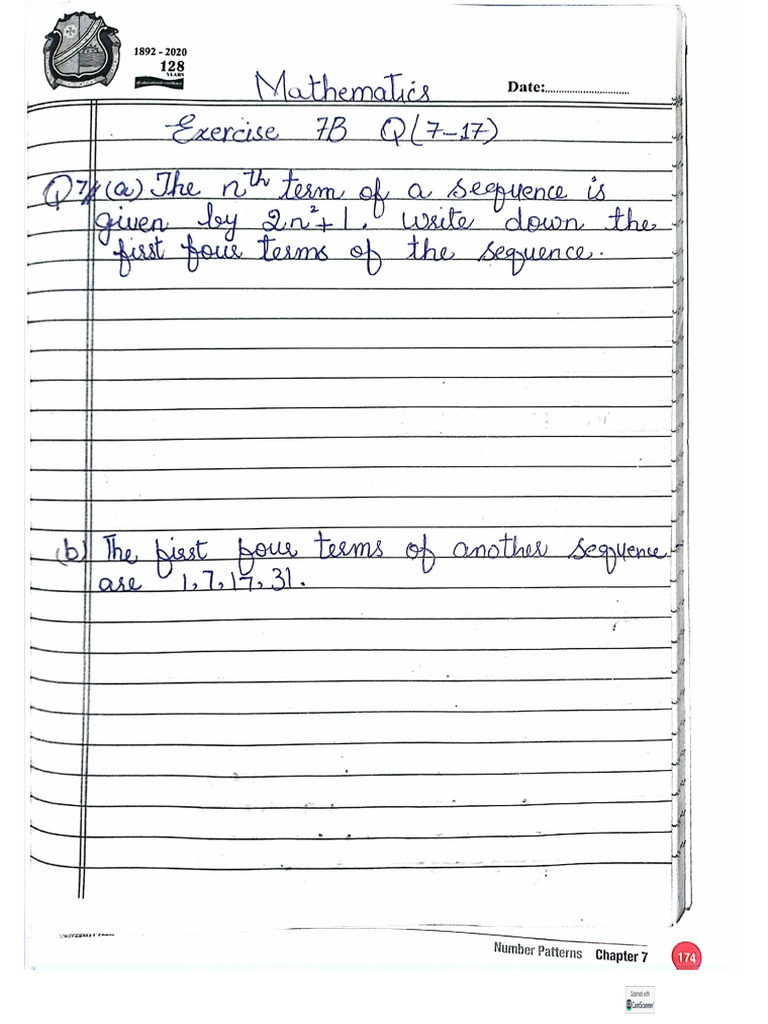 1892 - 2020
128
YEARS
Mathematics
Date:............................
Exercise 7B Q(7-17)
Q7/(a) The nth term of a sequence is
given by 2n²+1. Write down the
first four terms of the sequence.
(b) The first four terms of another sequence
are 1,7,17,31.
Number Patterns Chapter 7 174
Scanned with
CamScanner